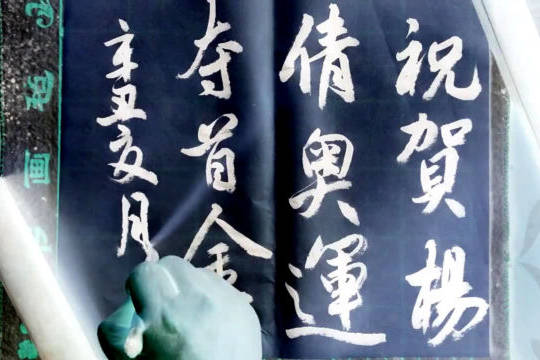 祝賀楊
倩奧運
夺首金
辛丑夏月
毡画